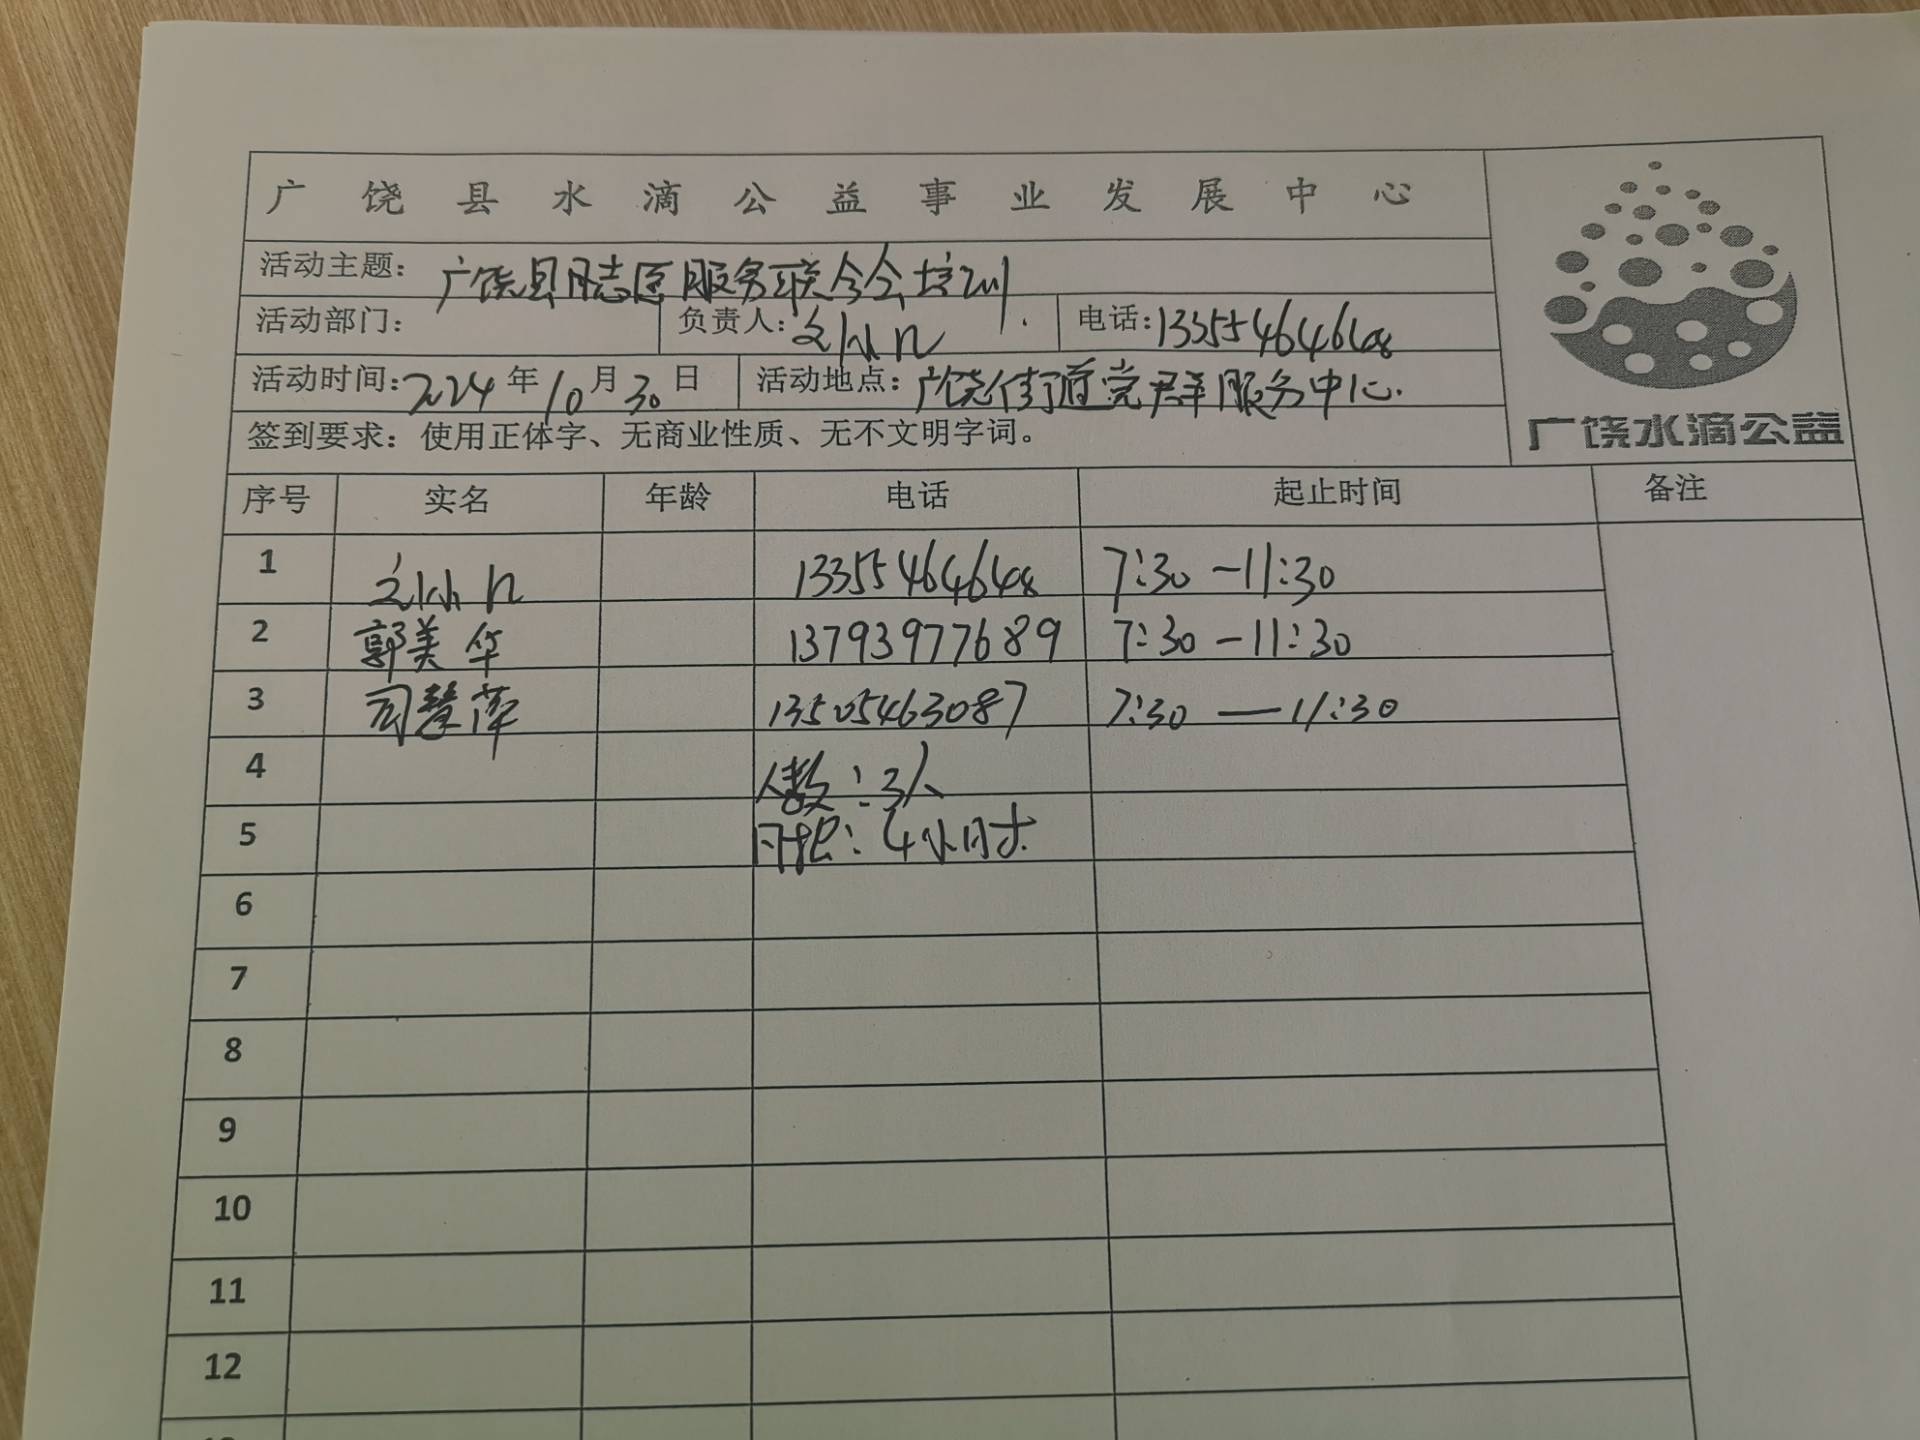 广饶县水滴公益事业发展中心
活动主题： 广饶县 服务联合会培训
活动部门： 负责人： 电话：13355464648
活动时间：2024年10月30日 活动地点：广饶街道党群服务中心.
签到要求：使用正体字、无商业性质、无不文明字词。
广饶水滴公益
序号 实名 年龄 电话 起止时间 备注
1 13355464648 7:30-11:30
2 郭美华 13793977689 7:30-11:30
3 司慧萍 13505463087 7:30—11:30
4 人数：3人
5 ：4小时
6
7
8
9
10
11
12